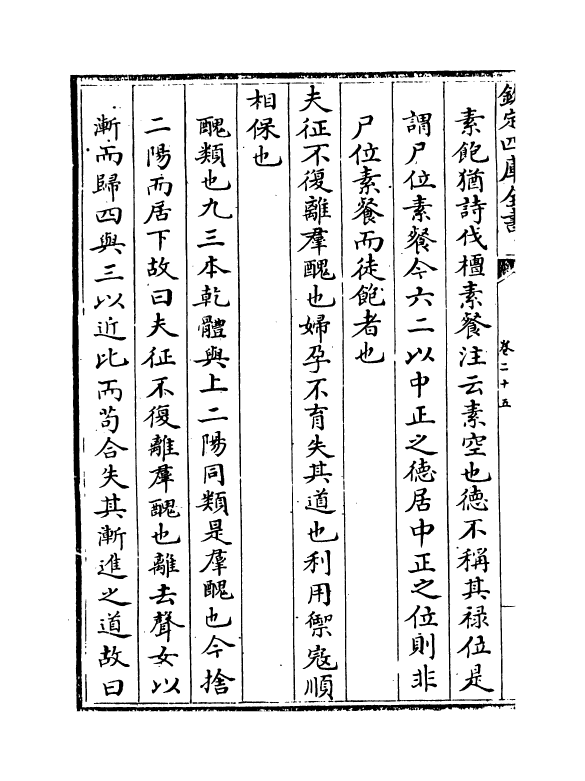 欽定四庫全書
卷二十五
素飽猶詩伐檀素餐注云素空也徳不稱其禄位是
謂尸位素餐今六二以中正之徳居中正之位則非
尸位素餐而徒飽者也
夫征不復離羣醜也婦孕不育失其道也利用禦寇順
相保也
醜類也九三本乾體與上二陽同類是羣醜也今捨
二陽而居下故曰夫征不復離羣醜也離去聲女以
漸而歸四與三以近比而茍合失其漸進之道故曰